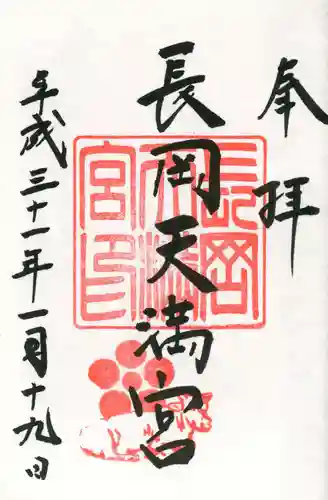 奉拝
長岡天満宮
長岡天満宮印
平成三十一年一月十九日